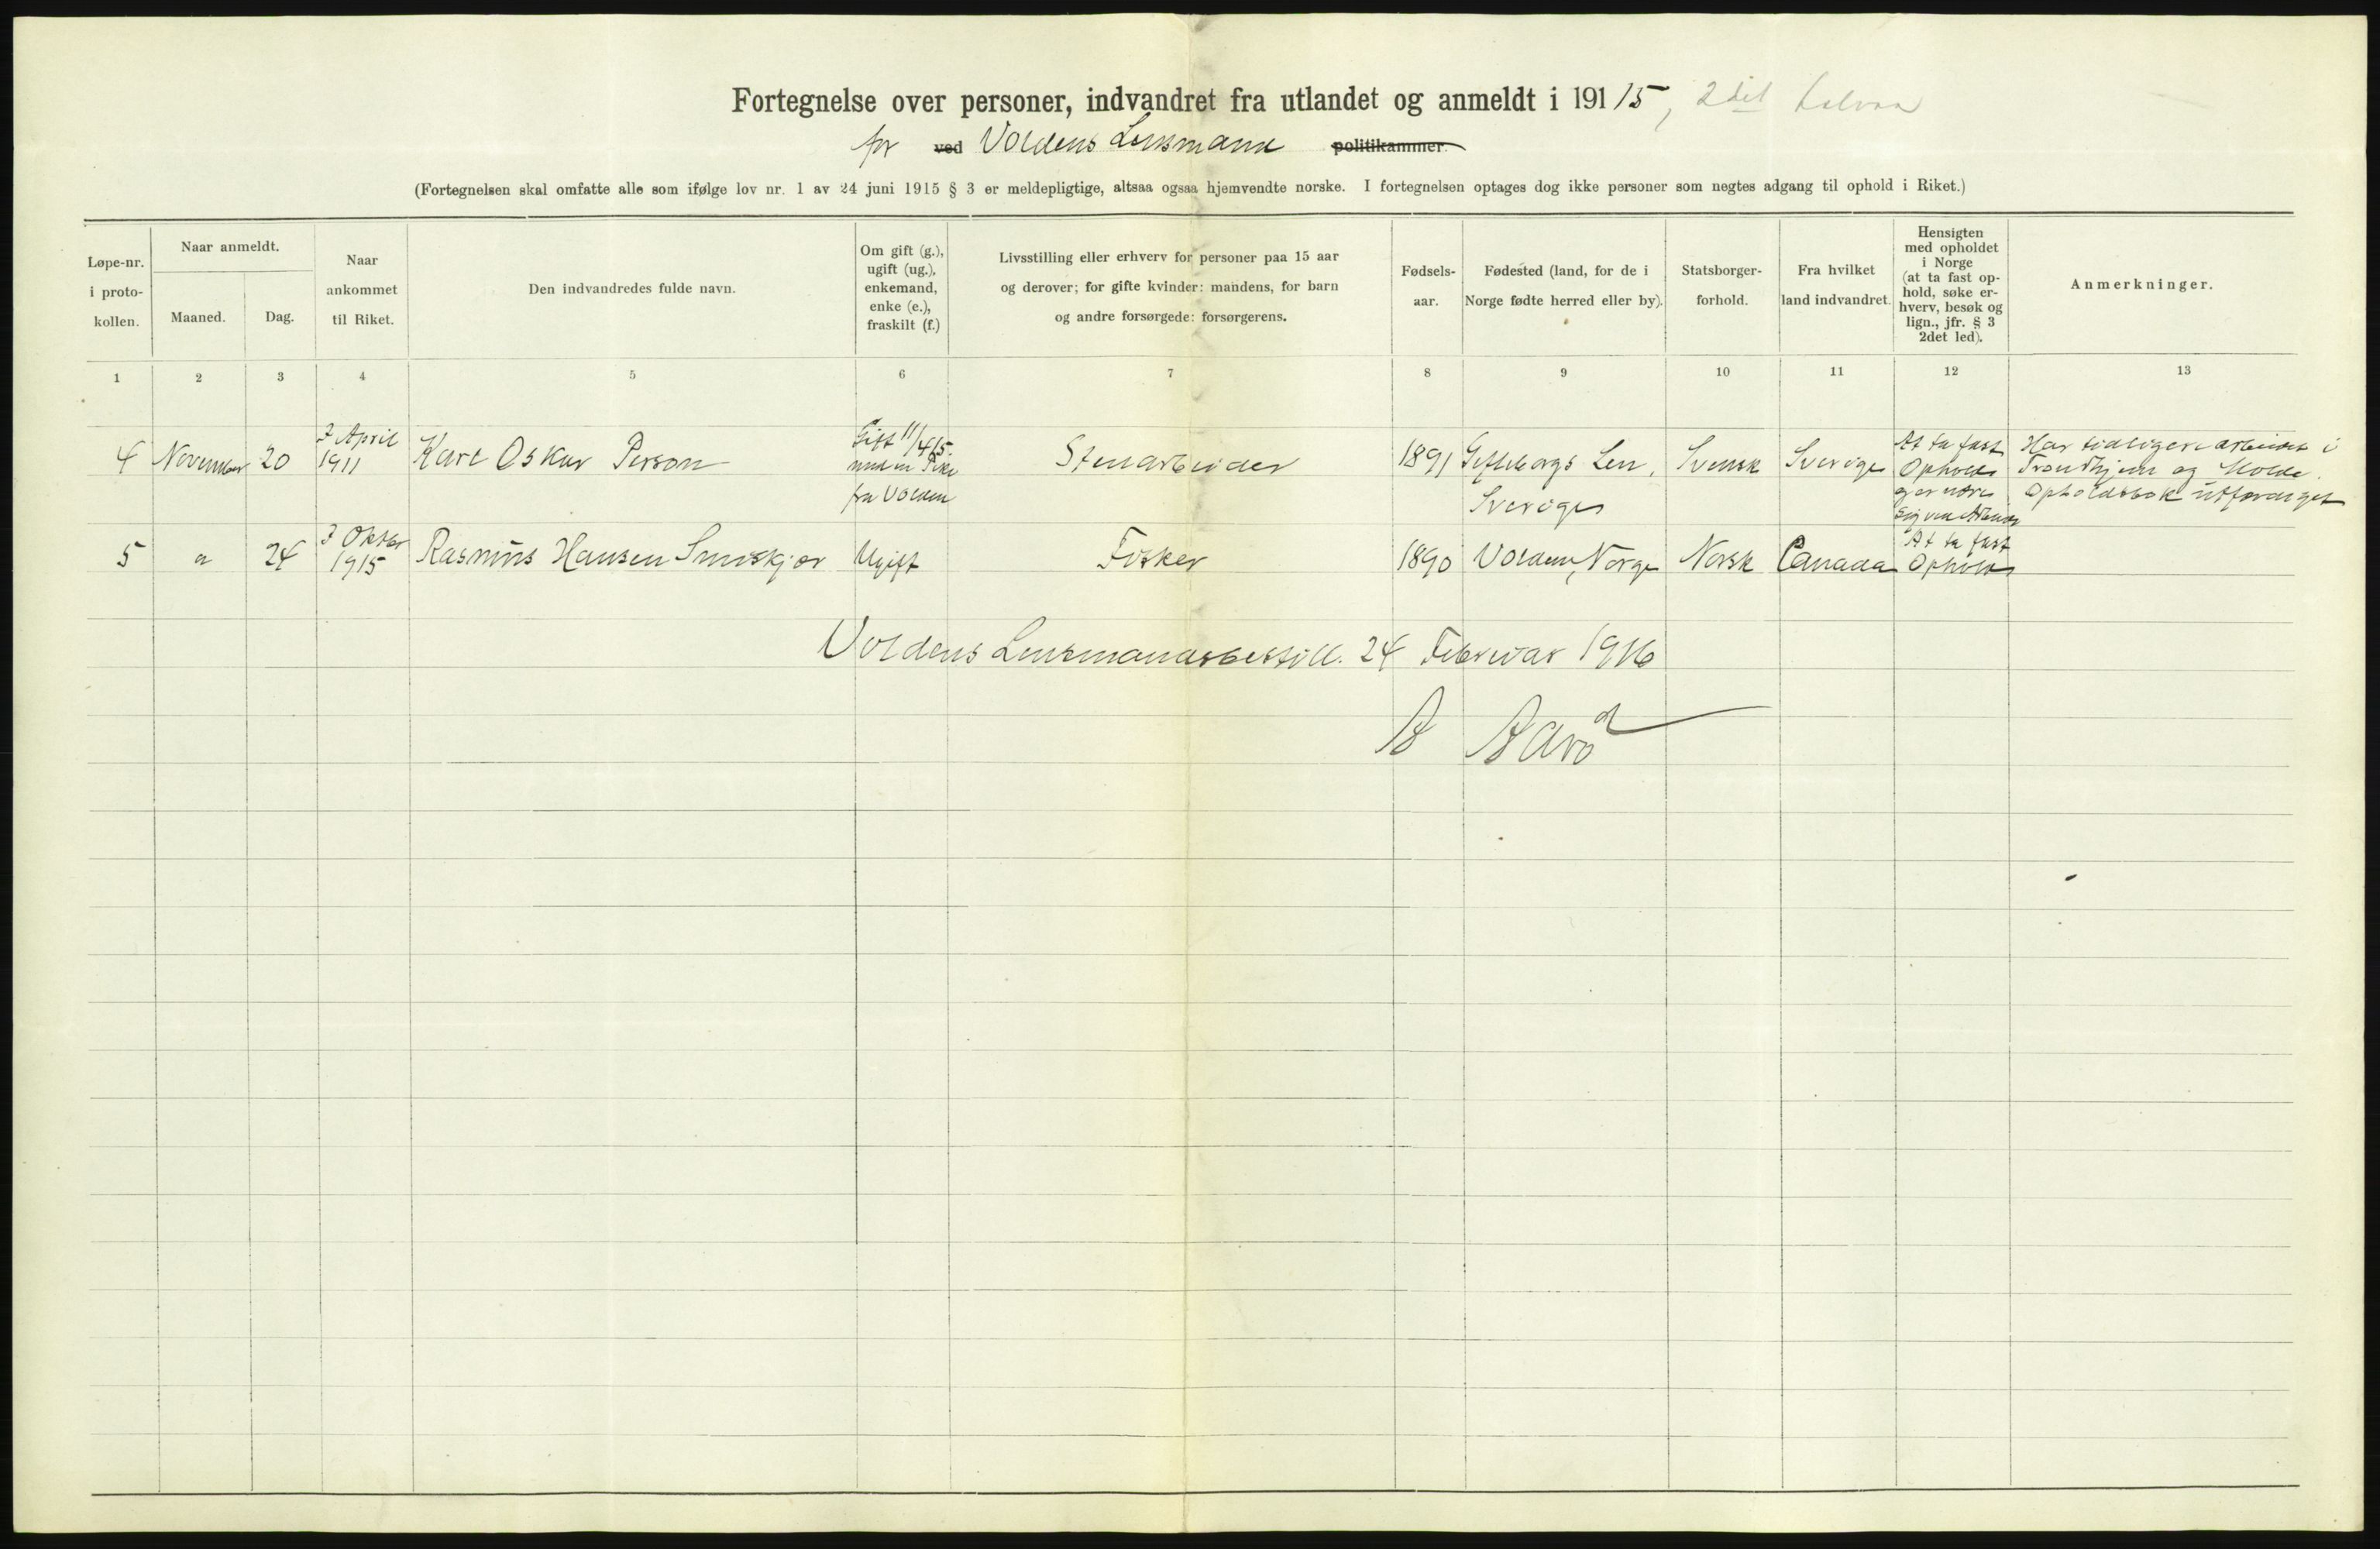 Fortegnelse over personer, indvandret fra utlandet og anmeldt i 19115, 2det halvaar
for ved Voldens Lensmand politikammer.
(Fortegnelsen skal omfatte alle som ifølge lov nr. 1 av 24 juni 1915 § 3 er meldepligtige, altsaa ogsaa hjemvendte norske. I fortegnelsen optages dog ikke personer som negtes adgang til ophold i Riket.)
Løpe-nr. i proto-kollen.
Naar anmeldt.
Maaned.
Dag.
Naar ankommet til Riket.
Den indvandredes fulde navn.
Om gift (g.), ugift (ug.), enkemand, enke (e.), fraskilt (f.)
Livsstilling eller erhverv for personer paa 15 aar
og derover; for gifte kvinder: mandens, for barn
og andre forsørgede: forsørgerens.
Fødsels-aar.
Fødested (land, for de i
Norge fødte herred eller by).
Statsborger-forhold.
Fra hvilket land indvandret.
Hensigten
med opholdet
i Norge
(at ta fast op-
hold, søke er-
hverv, besøk og
lign., jfr. § 3
2det led).
Anmerkninger.
1 2 3 4 5 6 7 8 9 10 11 12 13
4 November 20 7 April 1911 Karl Oskar Person Gift 11/4 15 med en Pike fra Volden Stenarbeider 1891 Gefleborgs Len, Sverige Svensk Sverige At ta fast Ophold Har tidligere arbeidet i
Trondhjem og Molde.
Opholdsbok utfærdiget
5 " 24 7 Oktbr 1915 Rasmus Hansen Ugift Fisker 1890 Volden, Norge Norsk Canada At ta fast Ophold
Voldens Lensmandsbestill. 24 Februar 1916